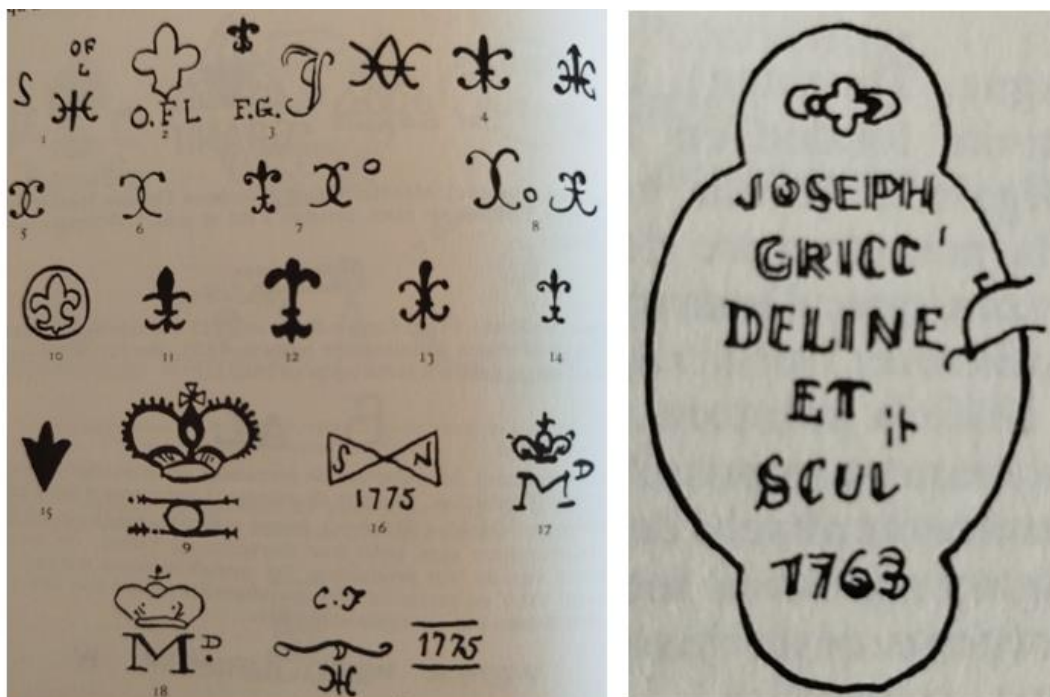 S
OF
L
1
O.FL
2
F.G.
J
3
4
5
6
7
8
10
11
12
13
14
15
9
S N
1775
16
M D
17
M D.
18
C.F
D
1775
JOSEPH
GRICC'
DELINE
ET it
SCUL
1763